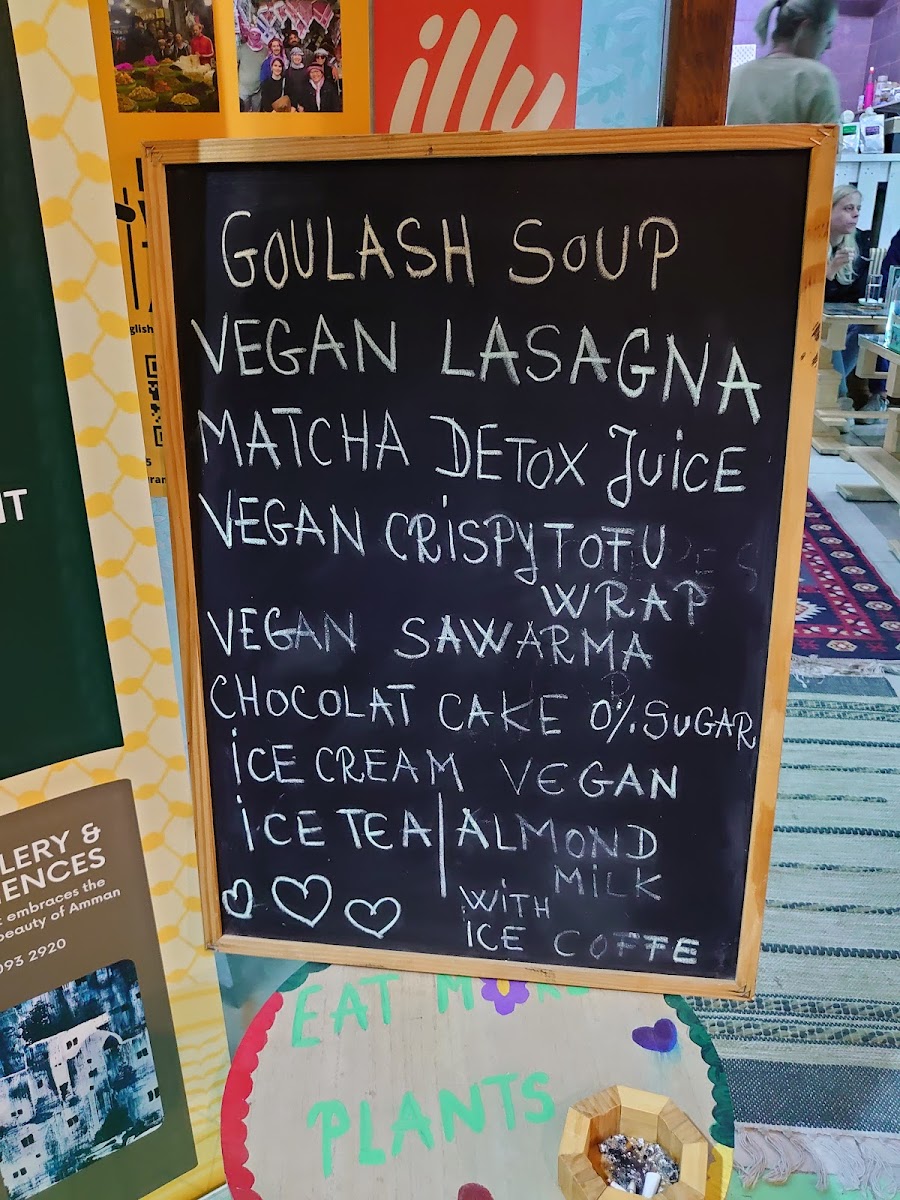 illy
GOULASH SOUP
VEGAN LASAGNA
MATCHA DETOX JUICE
VEGAN CRISPY TOFU
WRAP
VEGAN SAWARMA
CHOCOLAT CAKE 0% SUGAR
ICE CREAM VEGAN
ICE TEA | ALMOND
MILK
WITH
ICE COFFE
EAT MORE
PLANTS
LERY &
IENCES
embraces the
beauty of Amman
093 2920